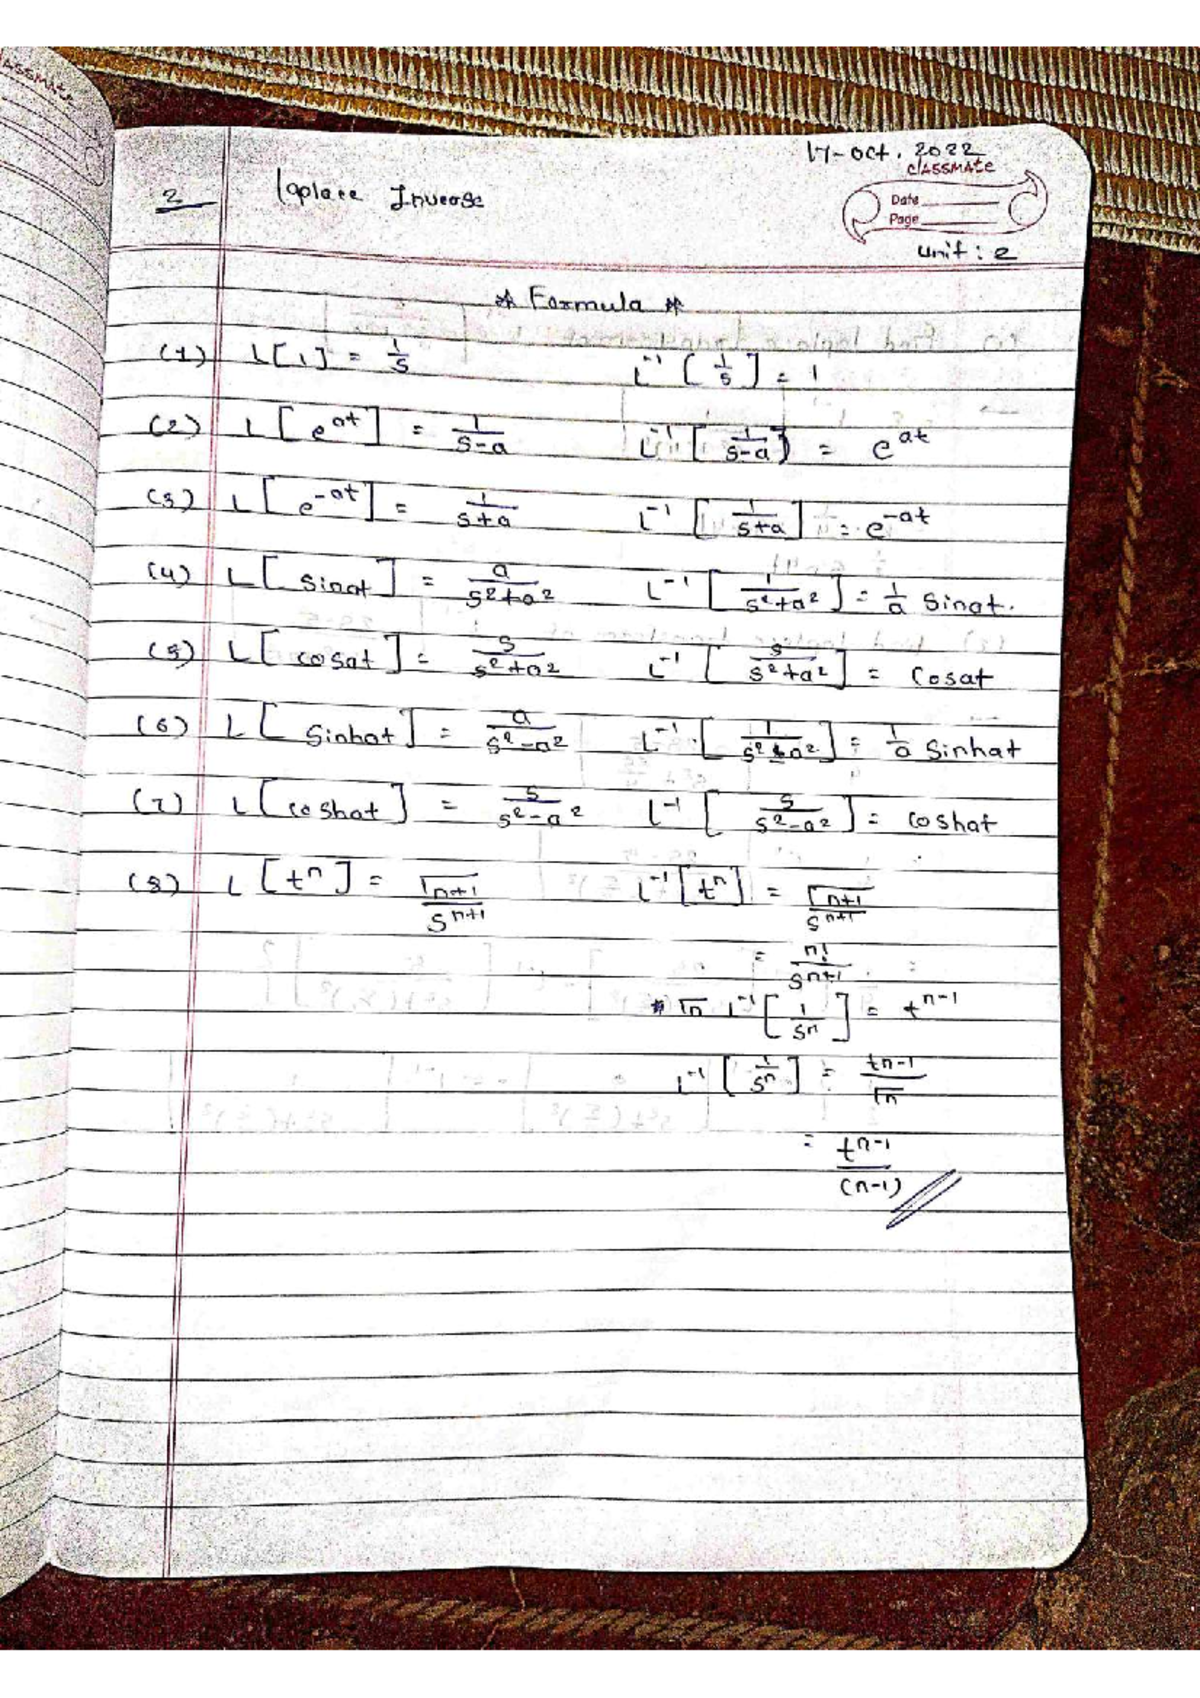 CLASSMATE
17-Oct. 2022
classmate
Date
Page
2 Laplace Inverse
unit : 2
* Formula *
(1) L[1] = 1/s L⁻¹[1/s] = 1
(2) L[e^at] = 1/(s-a) L⁻¹[1/(s-a)) = e^at
(3) L[e^-at] = 1/(s+a) L⁻¹[1/(s+a)] = e^-at
(4) L[sinat] = a/(s²+a²) L⁻¹[1/(s²+a²)] = 1/a sinat.
(5) L[cosat] = s/(s²+a²) L⁻¹[s/(s²+a²)] = cosat
(6) L[sinhat] = a/(s²-a²) L⁻¹[1/(s²-a²)] = 1/a sinhat
(7) L[coshat] = s/(s²-a²) L⁻¹[s/(s²-a²)] = coshat
(8) L[t^n] = Γn+1/s^n+1 L⁻¹[t^n] = Γn+1/s^n+1
= n!/s^n+1
* Γn L⁻¹[1/s^n] = t^n-1
L⁻¹[1/s^n] = t^n-1/Γn
= t^n-1/(n-1)